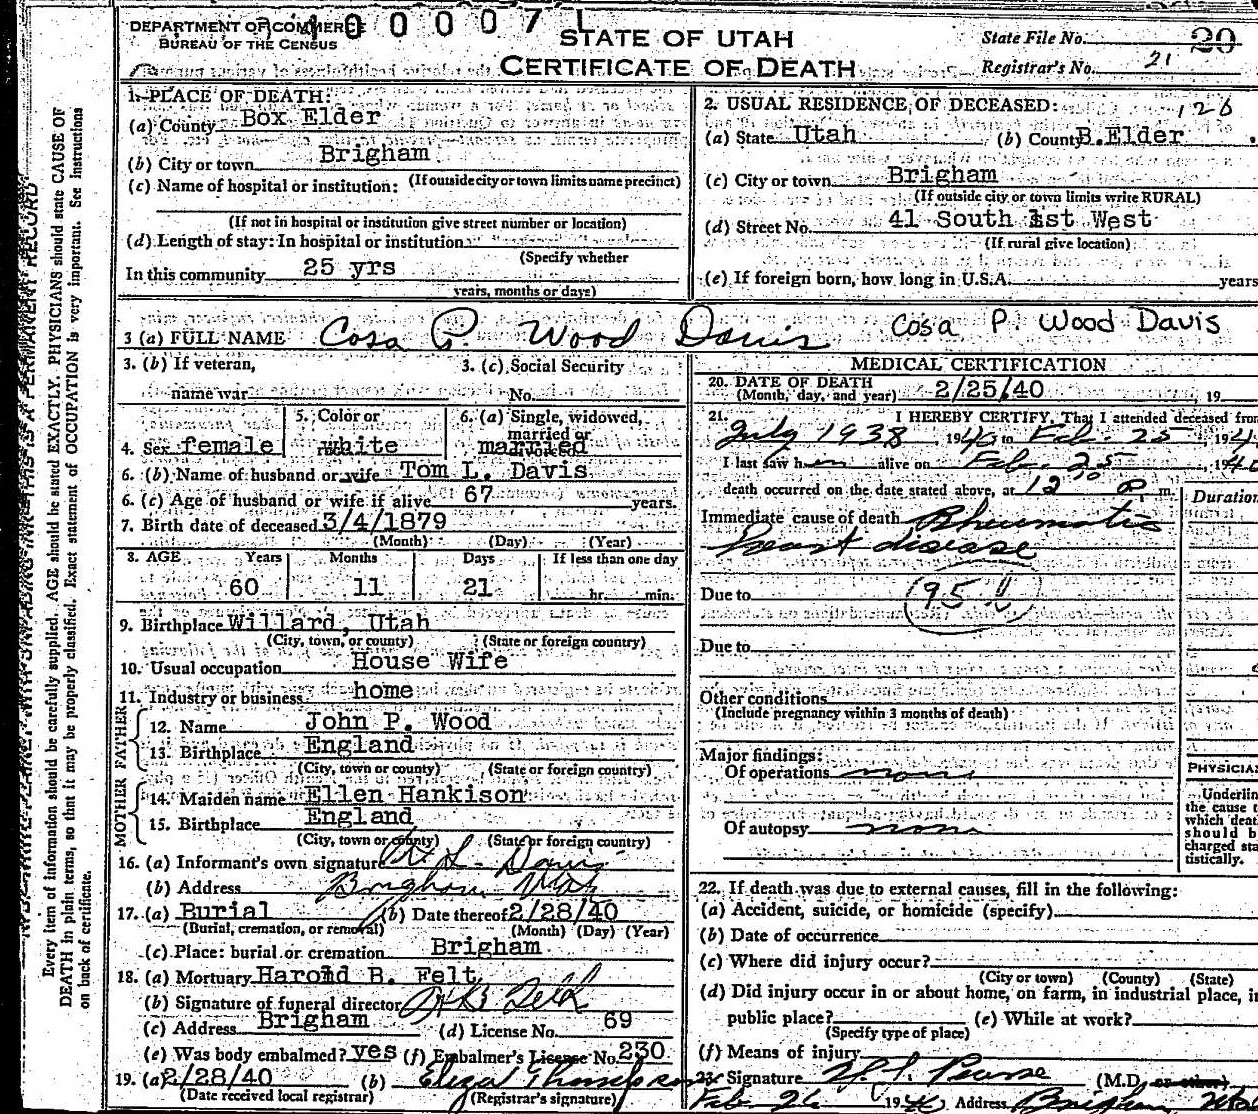 DEPARTMENT OF COMMERCE
BUREAU OF THE CENSUS
100071
STATE OF UTAH
CERTIFICATE OF DEATH
State File No. 20
Registrar's No. 21
1. PLACE OF DEATH:
(a) County Box Elder
(b) City or town Brigham
(If outside city or town limits name precinct)
(c) Name of hospital or institution:
(If not in hospital or institution give street number or location)
(d) Length of stay: In hospital or institution
(Specify whether
In this community 25 yrs
years, months or days)
2. USUAL RESIDENCE OF DECEASED: 126
(a) State Utah (b) County B.Elder
(c) City or town Brigham
(If outside city or town limits write RURAL)
(d) Street No. 41 South 1st West
(If rural give location)
(e) If foreign born, how long in U.S.A. years
3 (a) FULL NAME Cosa P. Wood Davis Cosa P. Wood Davis
3. (b) If veteran,
name war
3. (c) Social Security
No.
4. Sex female
5. Color or
race white
6. (a) Single, widowed,
married or
divorced married
6. (b) Name of husband or wife Tom L. Davis
6. (c) Age of husband or wife if alive 67 years.
7. Birth date of deceased 3/4/1879
(Month) (Day) (Year)
8. AGE Years Months Days If less than one day
60 11 21 hr. min.
9. Birthplace Willard, Utah
(City, town, or county) (State or foreign country)
10. Usual occupation House Wife
11. Industry or business home
FATHER
12. Name John P. Wood
13. Birthplace England
(City, town or county) (State or foreign country)
MOTHER
14. Maiden name Ellen Hankison
15. Birthplace England
(City, town or county) (State or foreign country)
16. (a) Informant's own signature L. Davis
(b) Address Brigham Utah
17. (a) Burial (b) Date thereof 2/28/40
(Burial, cremation, or removal) (Month) (Day) (Year)
(c) Place: burial or cremation Brigham
18. (a) Mortuary Harold B. Felt
(b) Signature of funeral director H B Felt
(c) Address Brigham (d) License No. 69
(e) Was body embalmed? yes (f) Embalmer's License No. 230
19. (a) 2/28/40 (b) Eliza Thompson
(Date received local registrar) (Registrar's signature)
MEDICAL CERTIFICATION
20. DATE OF DEATH
(Month, day, and year) 2/25/40, 19
21. I HEREBY CERTIFY, That I attended deceased from
July 1938 1940 to Feb. 25, 194
I last saw h alive on Feb. 25, 1940
death occurred on the date stated above, at 12 P. m.
Duration
Immediate cause of death Rheumatic
heart disease
Due to 95
Due to
Other conditions
(Include pregnancy within 3 months of death)
Major findings:
Of operations none
Of autopsy none
PHYSICIAN
Underlin
the cause t
which deat
should b
charged sta
tistically.
22. If death was due to external causes, fill in the following:
(a) Accident, suicide, or homicide (specify)
(b) Date of occurrence
(c) Where did injury occur?
(City or town) (County) (State)
(d) Did injury occur in or about home, on farm, in industrial place, in
public place? (e) While at work?
(Specify type of place)
(f) Means of injury
23. Signature Pearse (M.D. or other)
Feb. 26 1940 Address Brigham Utah
Every item of information should be carefully supplied. AGE should be stated EXACTLY. PHYSICIANS should state CAUSE OF
DEATH in plain terms, so that it may be properly classified. Exact statement of OCCUPATION is very important. See instructions
on back of certificate.